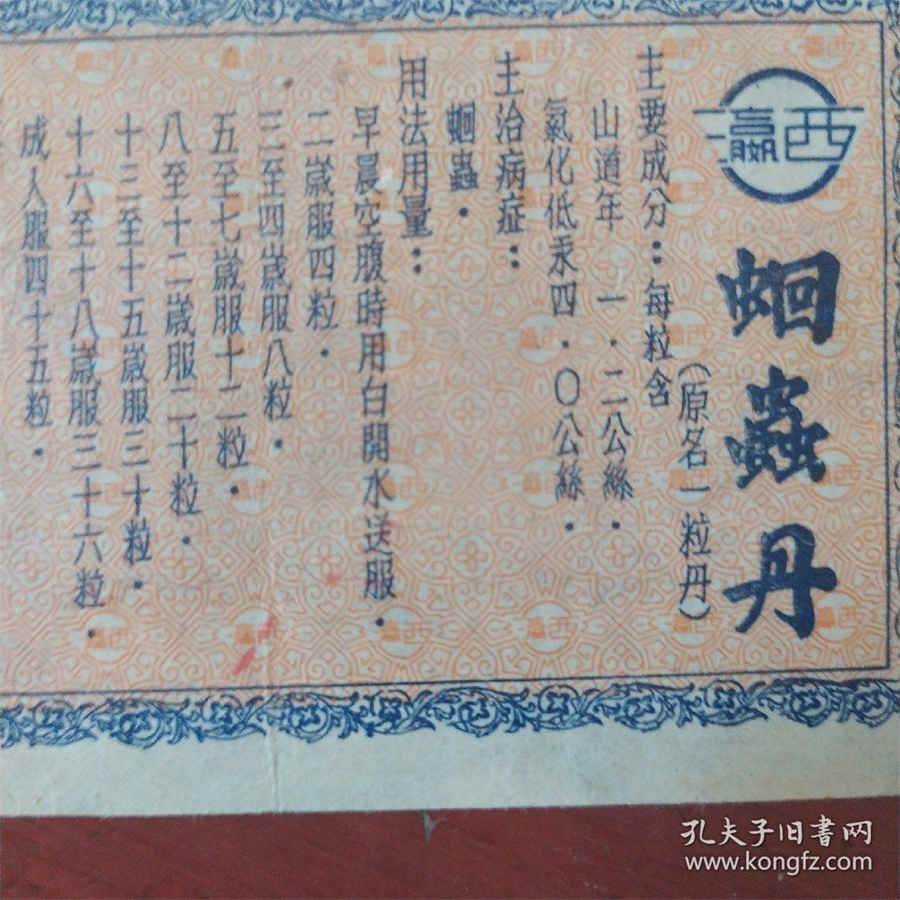 西嬴
蛔蟲丹
(原名一粒丹)
主要成分：每粒含
山道年　一．二公絲．
氯化低汞四．〇公絲．
主治病症：
蛔蟲．
用法用量：
早晨空腹時用白開水送服．
二嵗服四粒．
三至四嵗服八粒．
五至七嵗服十二粒．
八至十二嵗服二十粒．
十三至十五嵗服三十粒．
十六至十八嵗服三十六粒．
成人服四十五粒．
孔夫子旧书网
www.kongfz.com